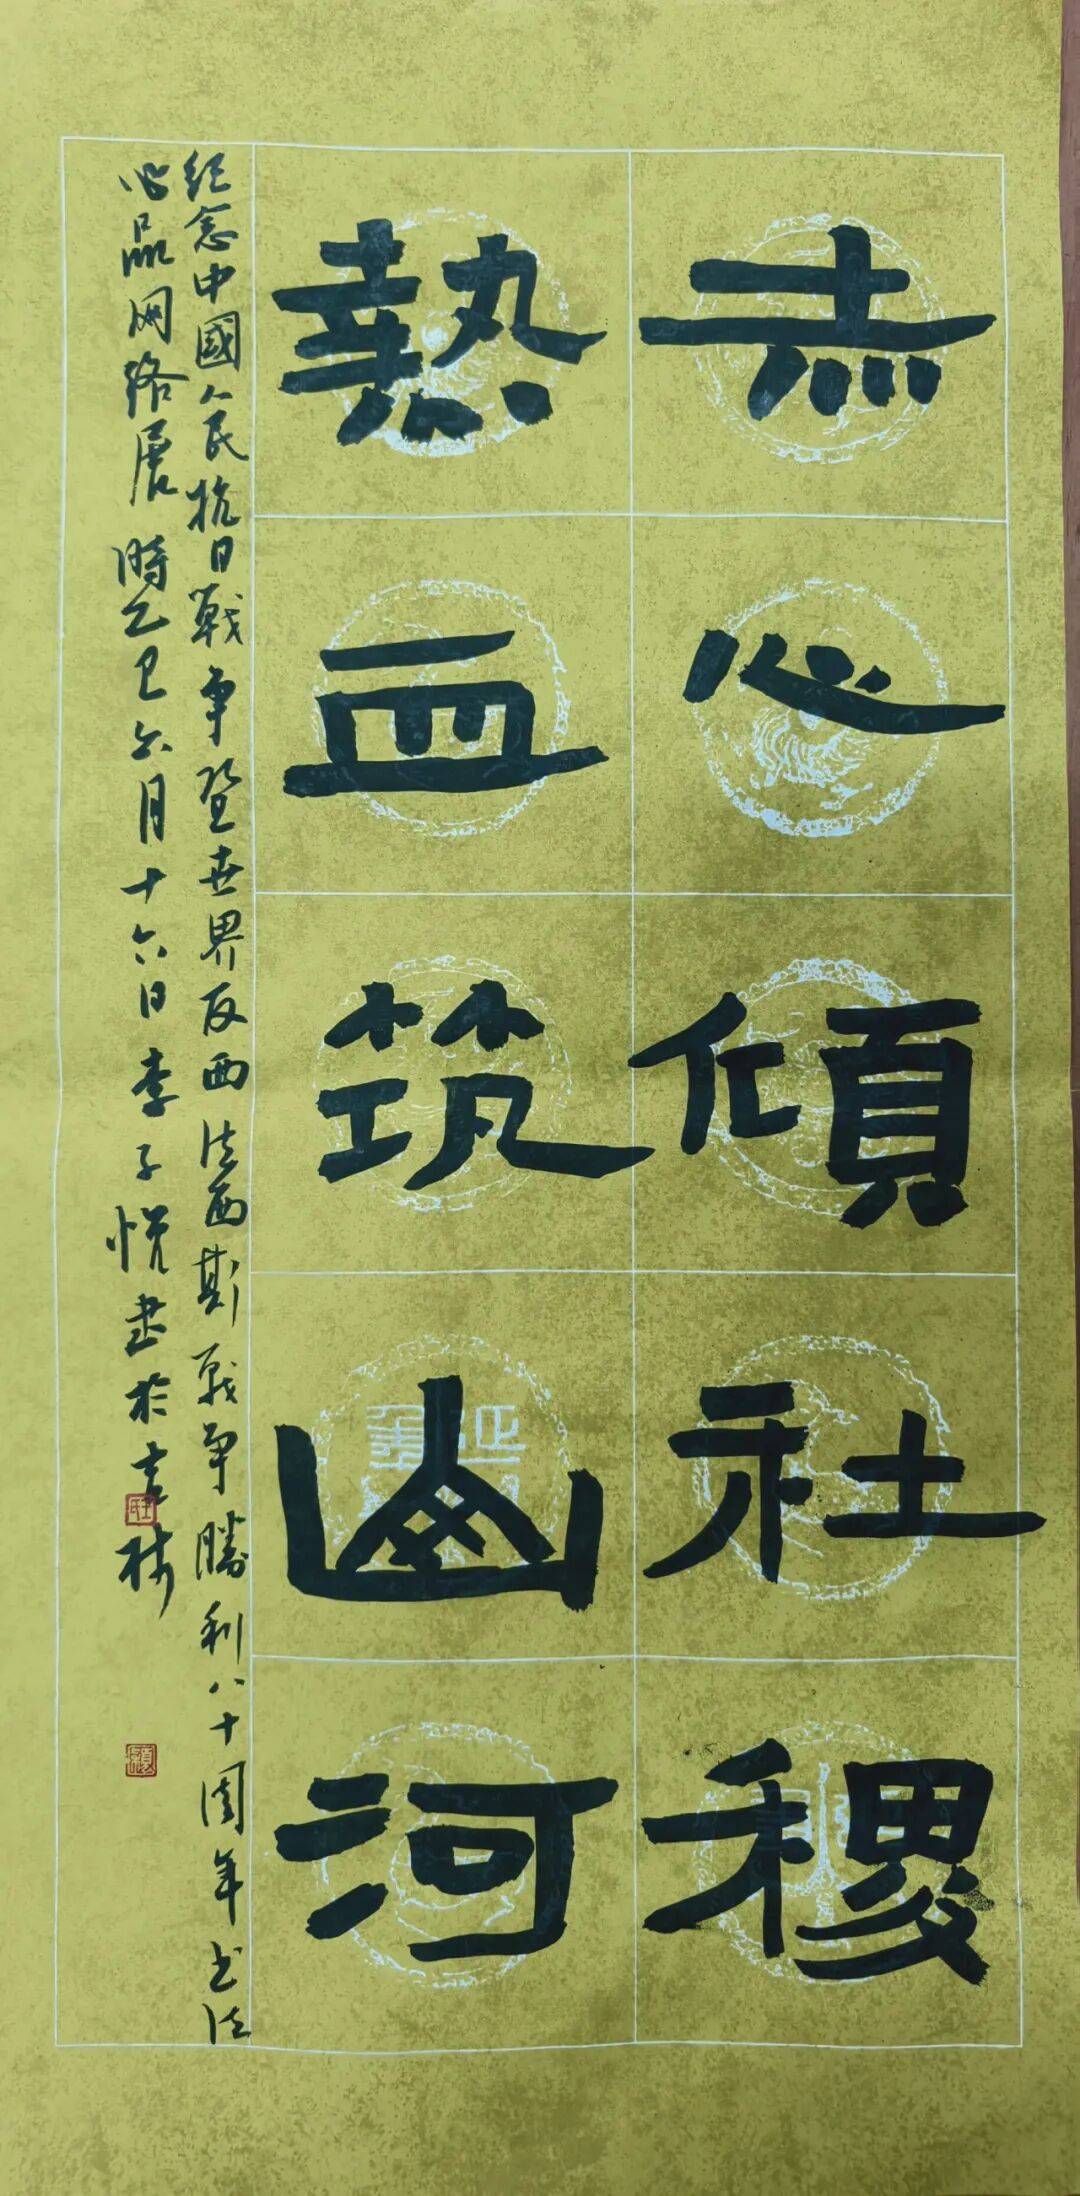 赤心傾社稷
熱血筑山河
纪念中國人民抗日戰争暨世界反西法西斯戰争勝利八十周年书法
作品网络展 時乙巳六月十六日李子悦書於吉林